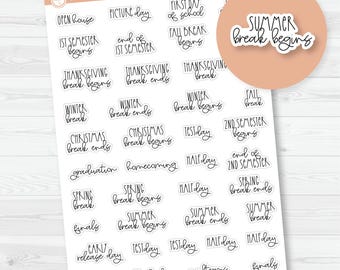 OPEN house
PICTURE day
FIRST DAY
of school
1ST SEMESTER
begins
end of
1ST SEMESTER
FALL BREAK
begins
THANKSGIVING
break
THANKSGIVING
break ends
THANKSGIVING
WINTER
break
WINTER
break ends
WINTER
break begins
FALL
break
CHRISTMAS
break ends
CHRISTMAS
break begins
TEST day
2ND SEMESTER
begins
graduation
homecoming
HALF day
end of
2ND SEMESTER
SPRING
break
SPRING
break begins
HALF day
SPRING
break ends
finals
SUMMER
break begins
SUMMER
break ends
SUMMER
break
EARLY
release day
TEST day
TEST day
HALF day
HALF day
finals
SUMMER
break begins